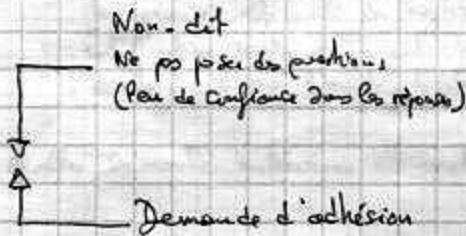 Non-dit
Ne pas poser des questions
(Peu de confiance dans les réponses)
Demande d'adhésion